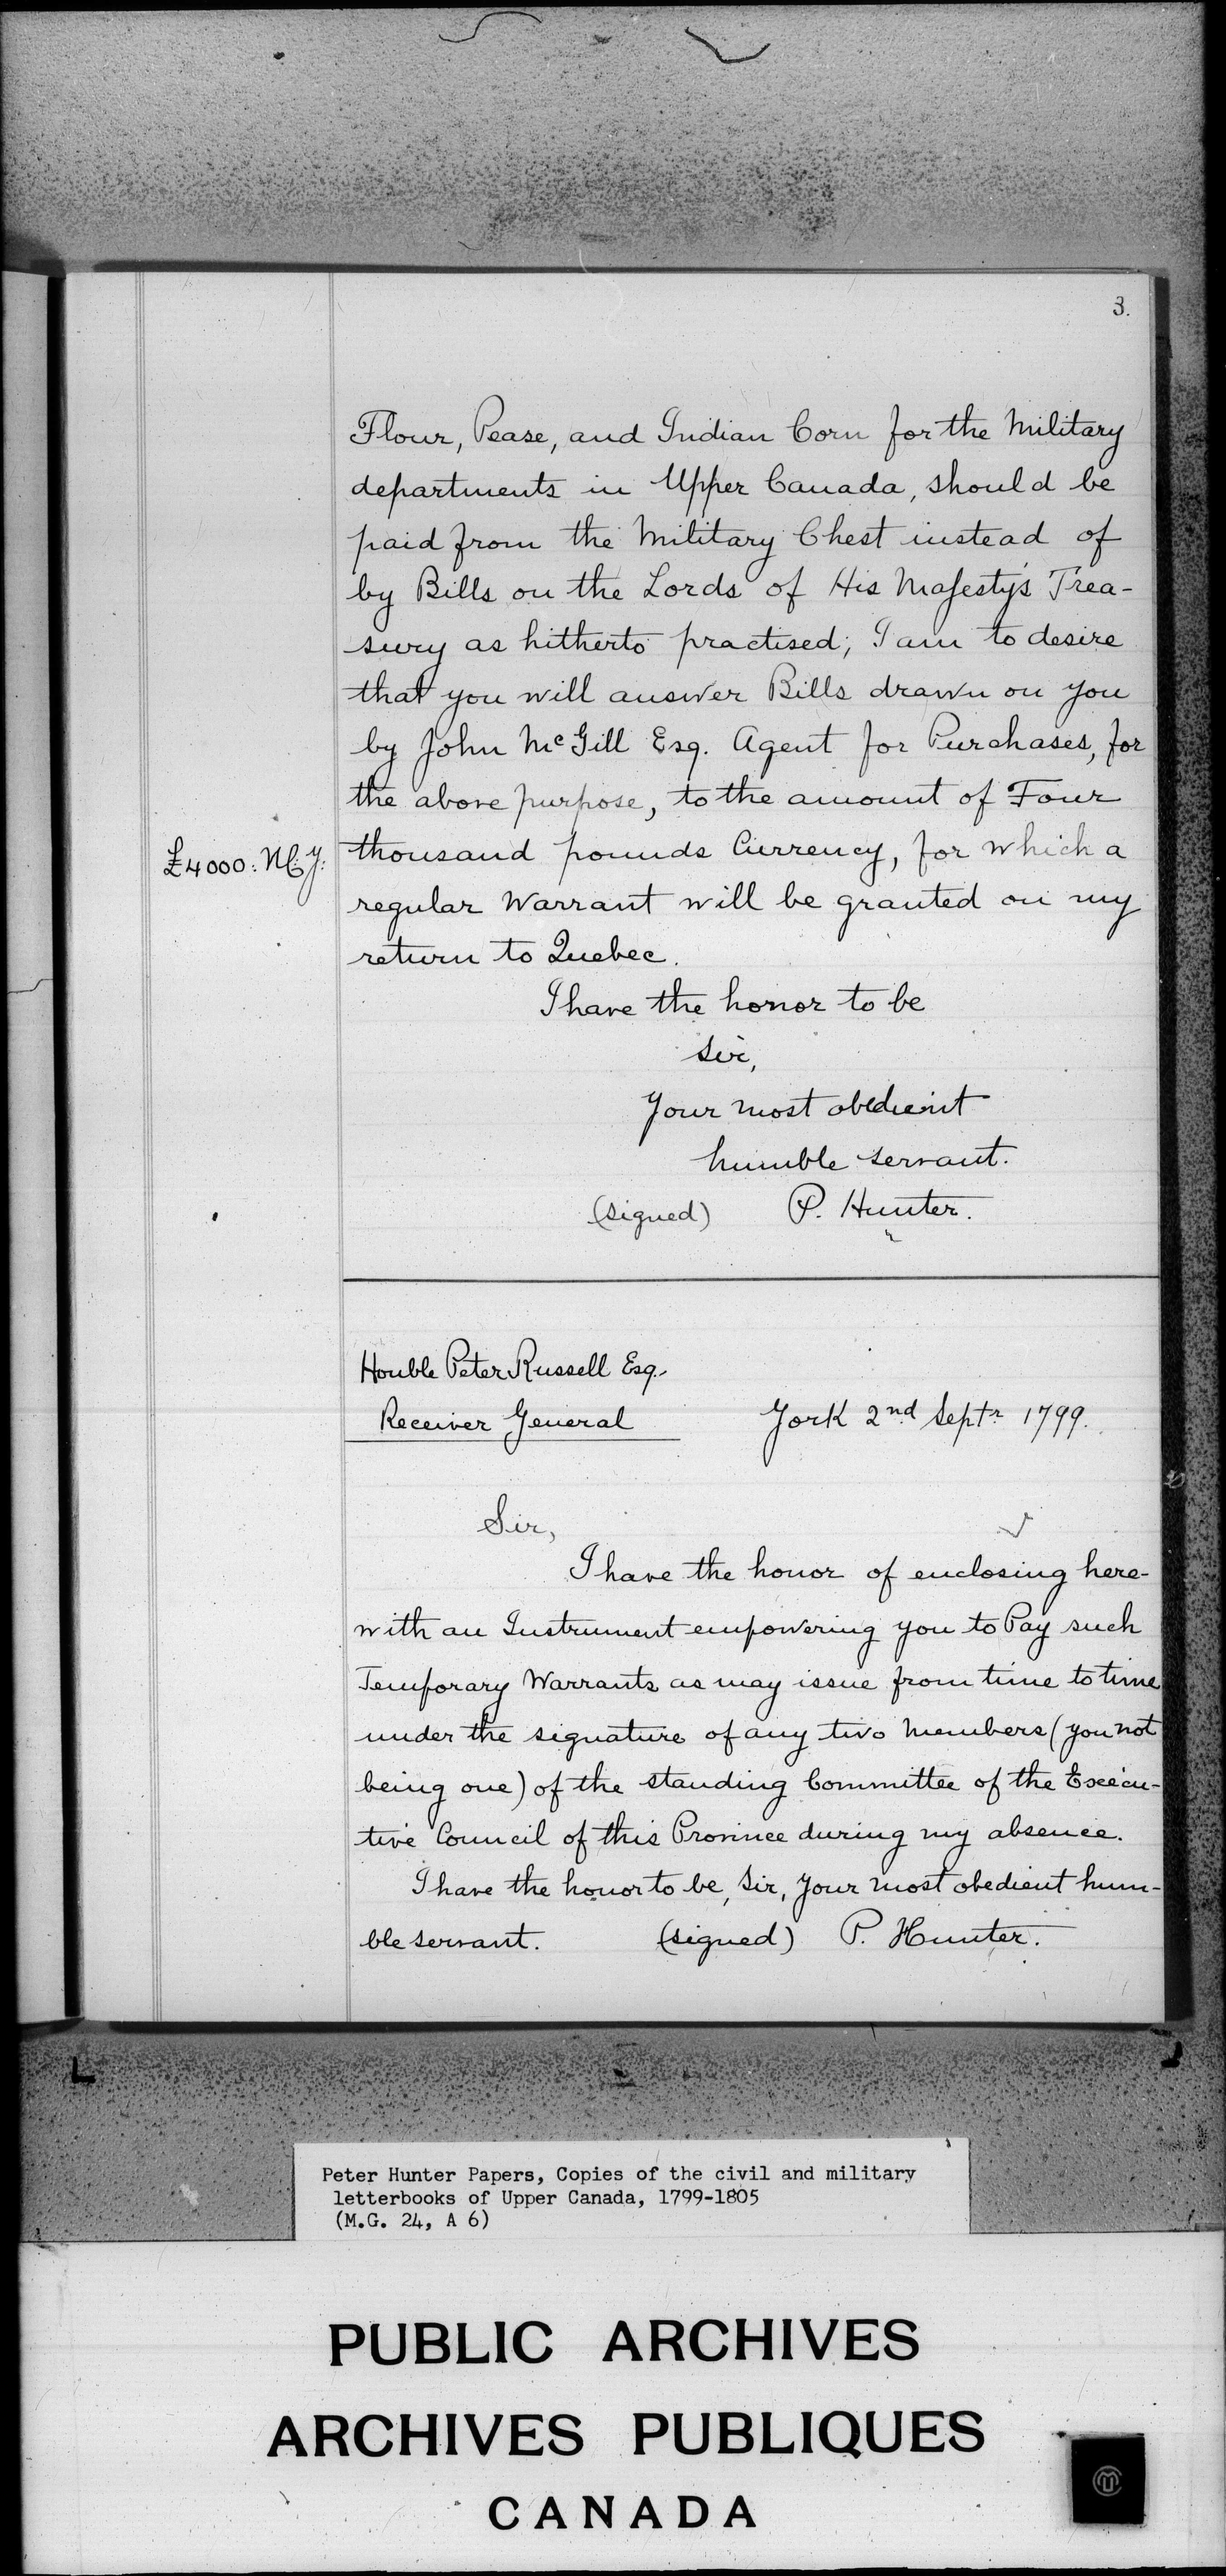 3.
Flour, Pease, and Indian Corn for the Military
departments in Upper Canada, should be
paid from the Military Chest instead of
by Bills on the Lords of His Majesty's Trea-
sury as hitherto practised; I am to desire
that you will answer Bills drawn on you
by John McGill Esq. Agent for Purchases, for
the above purpose, to the amount of Four
£4000: thousand pounds Currency, for which a
regular Warrant will be granted on my
return to Quebec.
I have the honor to be
Sir,
Your most obedient
humble servant.
(signed) P. Hunter.
Honble Peter Russell Esq.
Receiver General York 2nd Septr 1799.
Sir,
I have the honor of enclosing here-
with an Instrument empowering you to Pay such
Temporary Warrants as may issue from time to time
under the signature of any two Members (you not
being one) of the standing Committee of the Execu-
tive Council of this Province during my absence.
I have the honor to be, Sir, Your most obedient hum-
ble servant. (signed) P. Hunter.
Peter Hunter Papers, Copies of the civil and military
letterbooks of Upper Canada, 1799-1805
(M.G. 24, A 6)
PUBLIC ARCHIVES
ARCHIVES PUBLIQUES
CANADA